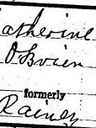 Catherine
O'Brien
formerly
Rainey